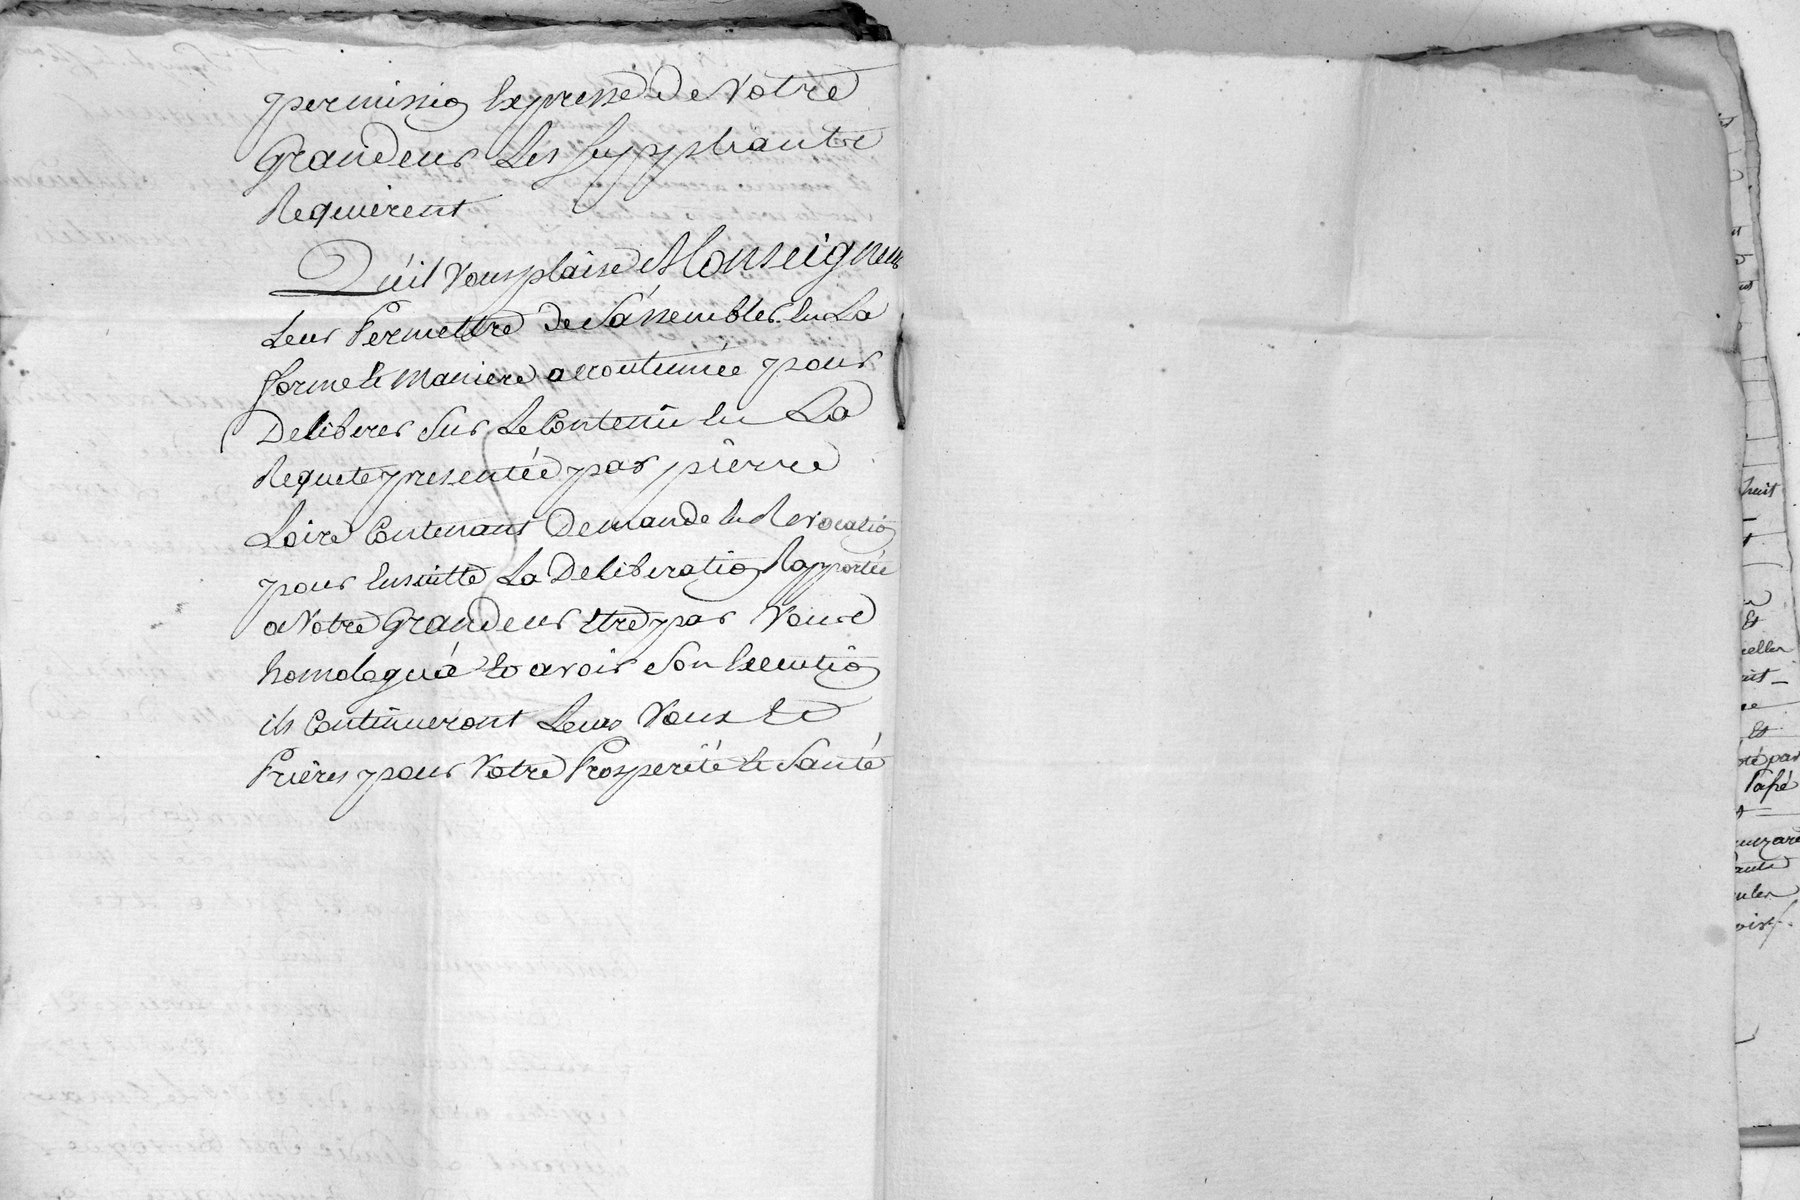 permission Expresse de Votre
Grandeur Les suppliants
Requierent
Qu'il Vous plaise Monseigneur
Leur Permettre de S'assembler En La
forme et maniere accoutumée pour
Deliberer Sur Le Contenu En La
Requete presentée par pierre
Loire Contenant Demande En Revocation
pour Ensuitte La Deliberation Rapportée
a Votre Grandeur Etre par Vous
homologué Et avoir Son Execution
ils Continueront Leurs Voeux Et
Prières pour Votre Prosperité Et Santé
huit
Et
Et
Papé